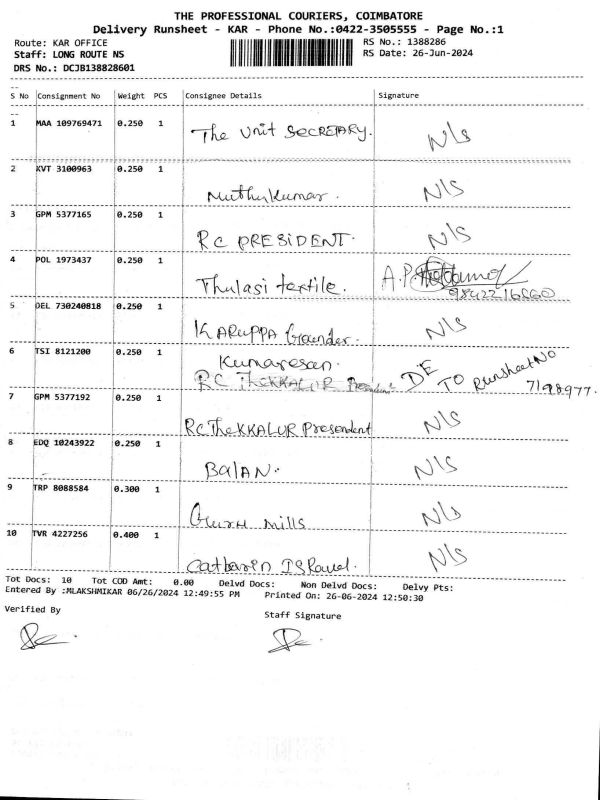 THE PROFESSIONAL COURIERS, COIMBATORE
Delivery Runsheet - KAR - Phone No.:0422-3505555 - Page No.:1
Route: KAR OFFICE RS No.: 1388286
Staff: LONG ROUTE NS RS Date: 26-Jun-2024
DRS No.: DCJB138828601
S No Consignment No Weight PCS Consignee Details Signature
1 MAA 109769471 0.250 1 The Unit SECRETARY. N/S
2 KVT 3100963 0.250 1 Muthukumar. N/S
3 GPM 5377165 0.250 1 RC PRESIDENT. N/S
4 POL 1973437 0.250 1 Thulasi textile. A.P.
5 DEL 730240818 0.250 1 KARUPPA Gounder. N/S
6 TSI 8121200 0.250 1 Kumaresan. DE TO Runsheet No
RC THEKKALUR President 7198977.
7 GPM 5377192 0.250 1 RC THEKKALUR Presendent N/S
8 EDQ 10243922 0.250 1 BalAN. N/S
9 TRP 8088584 0.300 1 mills N/S
10 TVR 4227256 0.400 1 N/S
Tot Docs: 10 Tot COD Amt: 0.00 Delvd Docs: Non Delvd Docs: Delvy Pts:
Entered By :MLAKSHMIKAR 06/26/2024 12:49:55 PM Printed On: 26-06-2024 12:50:30
Verified By Staff Signature